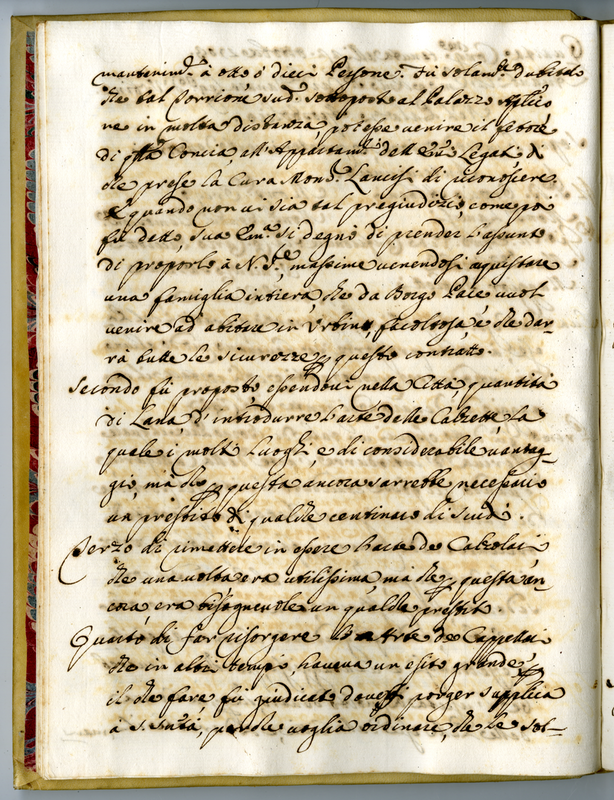 mantenim.to à otto ò dieci Persone. Fù solam.te dubitato
che dal Porrione sud.o sottoposto al Palazzo Aplico
ne in molta distanza, potesse venire il fetore
di q̃sta Concia, all'Appartam.to dell'Em.o Legato, il
che prese la Cura Mons.r Lancisi di riconoscere
e quando non vi sia tal pregiudizio, come poi
fù detto, sua Em.a si degnò di prender l'assunto
di proporlo à N. S.re, massime venendosi aquistare
una famiglia intiera, che da Borgo Pace vuol
venire ad abitare in Urbino, facoltosa, e che dar-
rà tutte le sicurezze p questo contratto.
Secondo fù proposto, essendovi nella Città quantità
di Lana, d'introdurre l'arte delle Calzette, la
quale i molti luoghi, e di considerabile vantag-
gio, mà che p questa ancora sarrebbe necessario
un prestito di qualche centinaio di scudi.
Terzo di rimettere in essere l'arte de Calzolai
che una volta era utilissima, mà che p questa an-
cora era bisognevole un qualche prestito.
Quarto di far risorgere l'Arte de Cappellai
che in altri tempi, haveva un esito grande, p
il che fare, fù giudicato doversi porger supplica
à S. Sntà, perche voglia ordinare, che le sol-